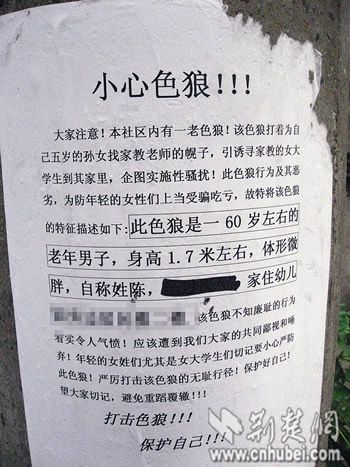 小心色狼!!!
大家注意！本社区内有一老色狼！该色狼打着为自
己五岁的孙女找家教老师的幌子，引诱寻家教的女大
学生到其家里，企图实施性骚扰！此色狼行为及其恶
劣，为防年轻的女性们上当受骗吃亏，故特将该色狼
的特征描述如下：此色狼是一 60 岁左右的
老年男子，身高 1.7 米左右，体形微
胖，自称姓陈，家住幼儿
该色狼不知廉耻的行为
着实令人气愤！应该遭到我们大家的共同鄙视和唾
弃！年轻的女姓们尤其是女大学生们切记要小心严防
此色狼！严厉打击该色狼的无耻行径！保护好自己！
望大家切记，避免重蹈覆辙！！！
打击色狼!!!
保护自己!!!
荆楚網
www.cnhubei.com